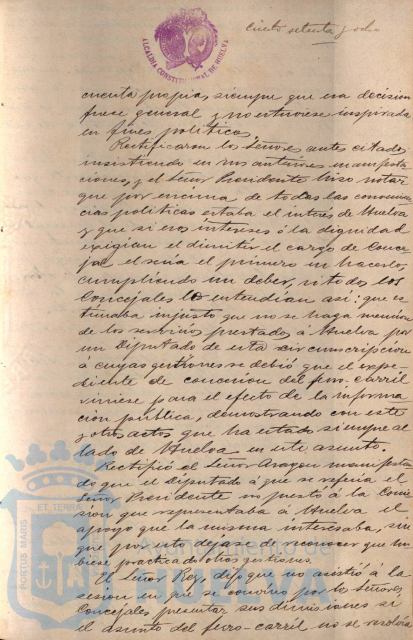 ciento setenta y ocho
ALCALDIA CONSTITUCIONAL DE HUELVA
cuenta propia, siempre que esa decision
fuese general y no estuviese inspirada
en fines politicos.
Rectificaron los Señores antes citados
insistiendo en sus anteriores manifesta
ciones, y el Señor Presidente hizo notar
que por encima de todas las convenien
cias politicas estaba el interés de Huelva
y que si esos intereses ó la dignidad
exigian el dimitir el cargo de Conce
jal el seria el primero en hacerlo,
cumpliendo un deber, si todos los
Concejales lo entendian asi: que es
timaba injusto que no se haga mencion
de los servicios prestados á Huelva por
un Diputado de esta circunscripcion
á cuyas gestiones se debió que el expe
diente de concesion del ferro-carril
viniese para el efecto de la informa
cion pública, demostrando con este
y otros actos que ha estado siempre al
lado de Huelva en este asunto.
Rectificó el Señor Aragon manifestan
do que el Diputado á que se referia el
Señor Presidente no prestó á la Comi
sion que representaba á Huelva el
apoyo que la misma interesaba, sin
que por esto dejase de reconocer que hu
biese practicado otras gestiones.
El Señor Rey, dijo que no asistió á la
sesion en que se convino por los Señores
Concejales presentar sus dimisiones si
el asunto del ferro-carril no se resolvia
PORTUS MARIS ET TERRÆ
Ayuntamiento de